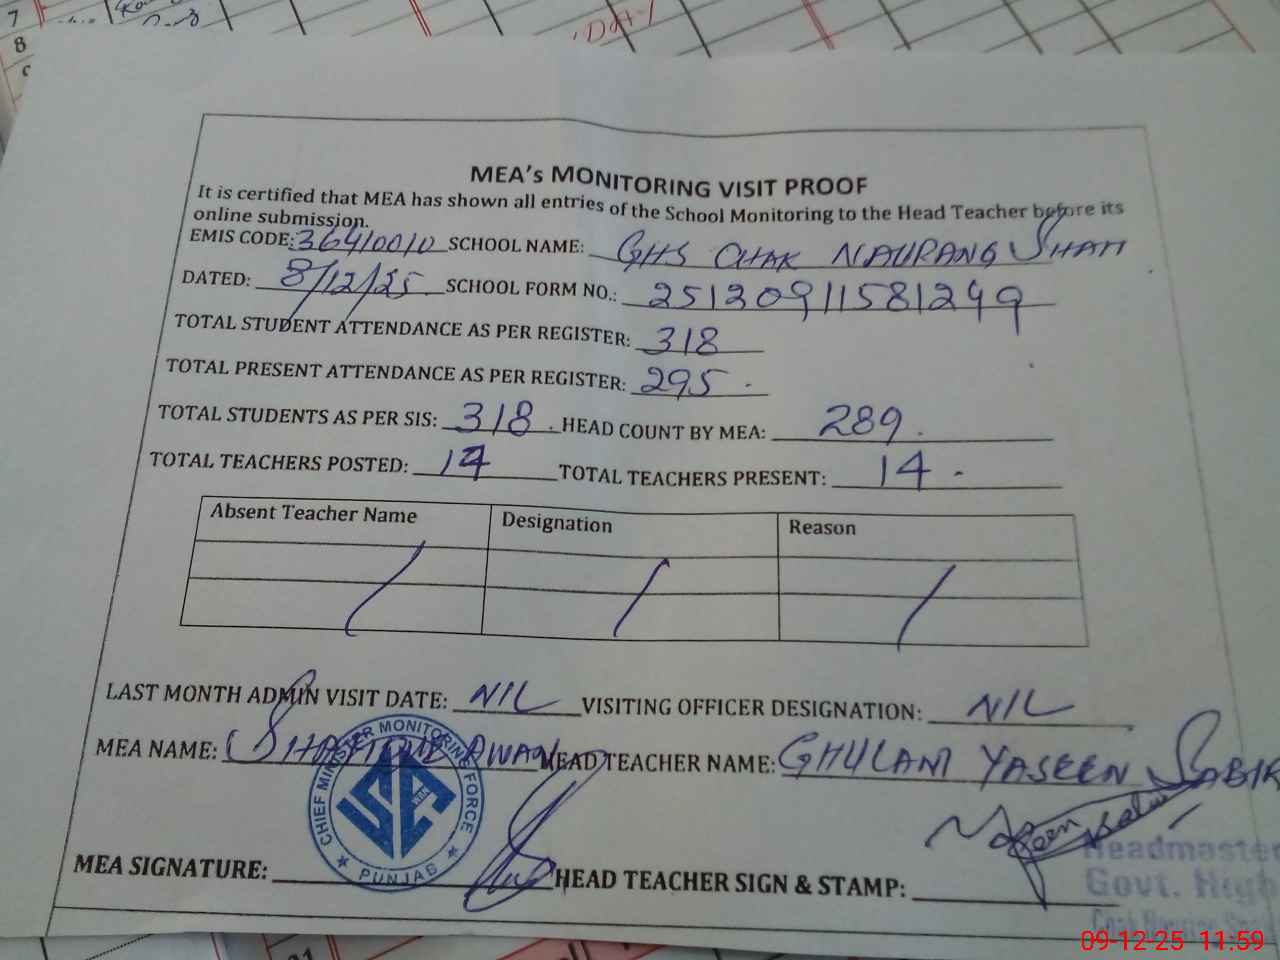 7
8
MEA's MONITORING VISIT PROOF
It is certified that MEA has shown all entries of the School Monitoring to the Head Teacher before its
online submission.
EMIS CODE: 36410010 SCHOOL NAME: GHS CHAK NAURANG SHAH
DATED: 8/12/25 SCHOOL FORM NO.: 25120911581249
TOTAL STUDENT ATTENDANCE AS PER REGISTER: 318
TOTAL PRESENT ATTENDANCE AS PER REGISTER: 295
TOTAL STUDENTS AS PER SIS: 318 HEAD COUNT BY MEA: 289
TOTAL TEACHERS POSTED: 14 TOTAL TEACHERS PRESENT: 14
Absent Teacher Name Designation Reason
LAST MONTH ADMIN VISIT DATE: NIL VISITING OFFICER DESIGNATION: NIL
MEA NAME: AWAN HEAD TEACHER NAME: GHULAM YASEEN SABIR
CHIEF MINISTER MONITORING FORCE
PUNJAB
MEA SIGNATURE: HEAD TEACHER SIGN & STAMP:
Headmaster
Govt. High
09-12-25 11:59